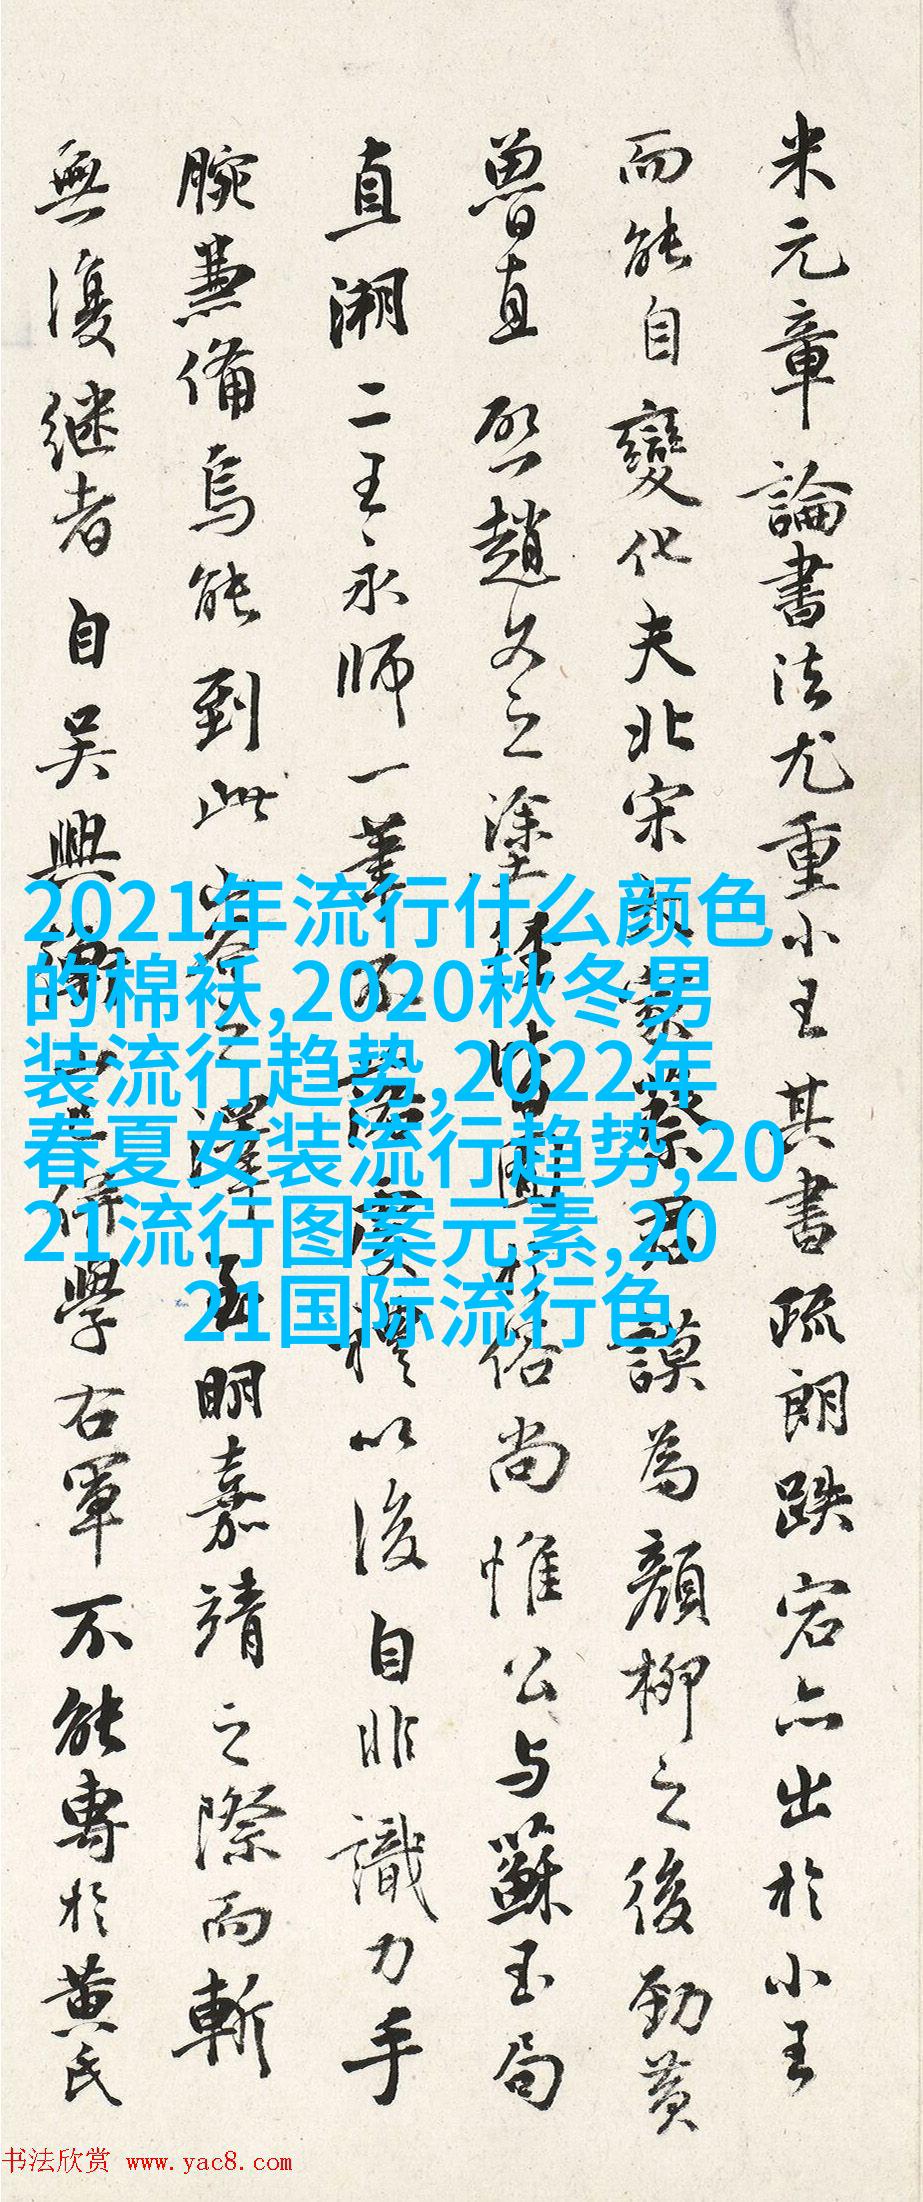 米元章論書法尤重小王其書疏朗跌宕亦出於小王
而能自變化夫北宋 蔡君謨為顏柳之後勁黄
魯直 趙文之塗 俗尚惟公与蘇玉局
直溯二王永師一 以後自非識力手
腕兼備烏能到此山谷之 明嘉靖之際而斬
無復继者自吴興 學右軍不能專於黄氏
2021年流行什么颜色
的棉袄,2020秋冬男
装流行趋势,2022年
春夏女装流行趋势,20
21流行图案元素,20
21国际流行色
书法欣赏 www.yac8.com